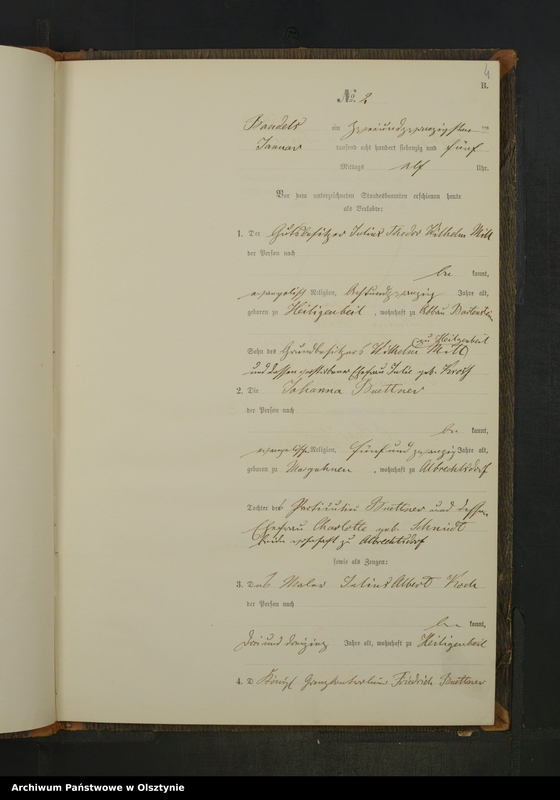 4
B.
No. 2
Bandels am zweiundzwanzigsten ten
Januar tausend acht hundert siebenzig und fünf
Mittags elf Uhr.
Vor dem unterzeichneten Standesbeamten erschienen heute
als Verlobte:
1. Der Gutsbesitzer Julius Theodor Wilhelm Mill
der Person nach
be kannt,
evangelisch Religion, Achtundzwanzig Jahre alt,
geboren zu Heiligenbeil, wohnhaft zu Abbau Bartenstein
Sohn des Grundbesitzers Wilhelm Mill zu Heiligenbeil
und dessen verstorbene Ehefrau Julie geb.
2. Die Johanna Buettner
der Person nach
be kannt,
evangelische Religion, fünf und zwanzig Jahre alt,
geboren zu, wohnhaft zu Albrechtsdorf
Tochter des Buettner und dessen
Ehefrau Charlotte geb. Schmidt
beide wohnhaft zu Albrechtsdorf
sowie als Zeugen:
3. Der Maler Julius Albert Koch
der Person nach
be kannt,
drei und dreißig Jahre alt, wohnhaft zu Heiligenbeil
4. D Königl Friedrich Buettner
Archiwum Państwowe w Olsztynie